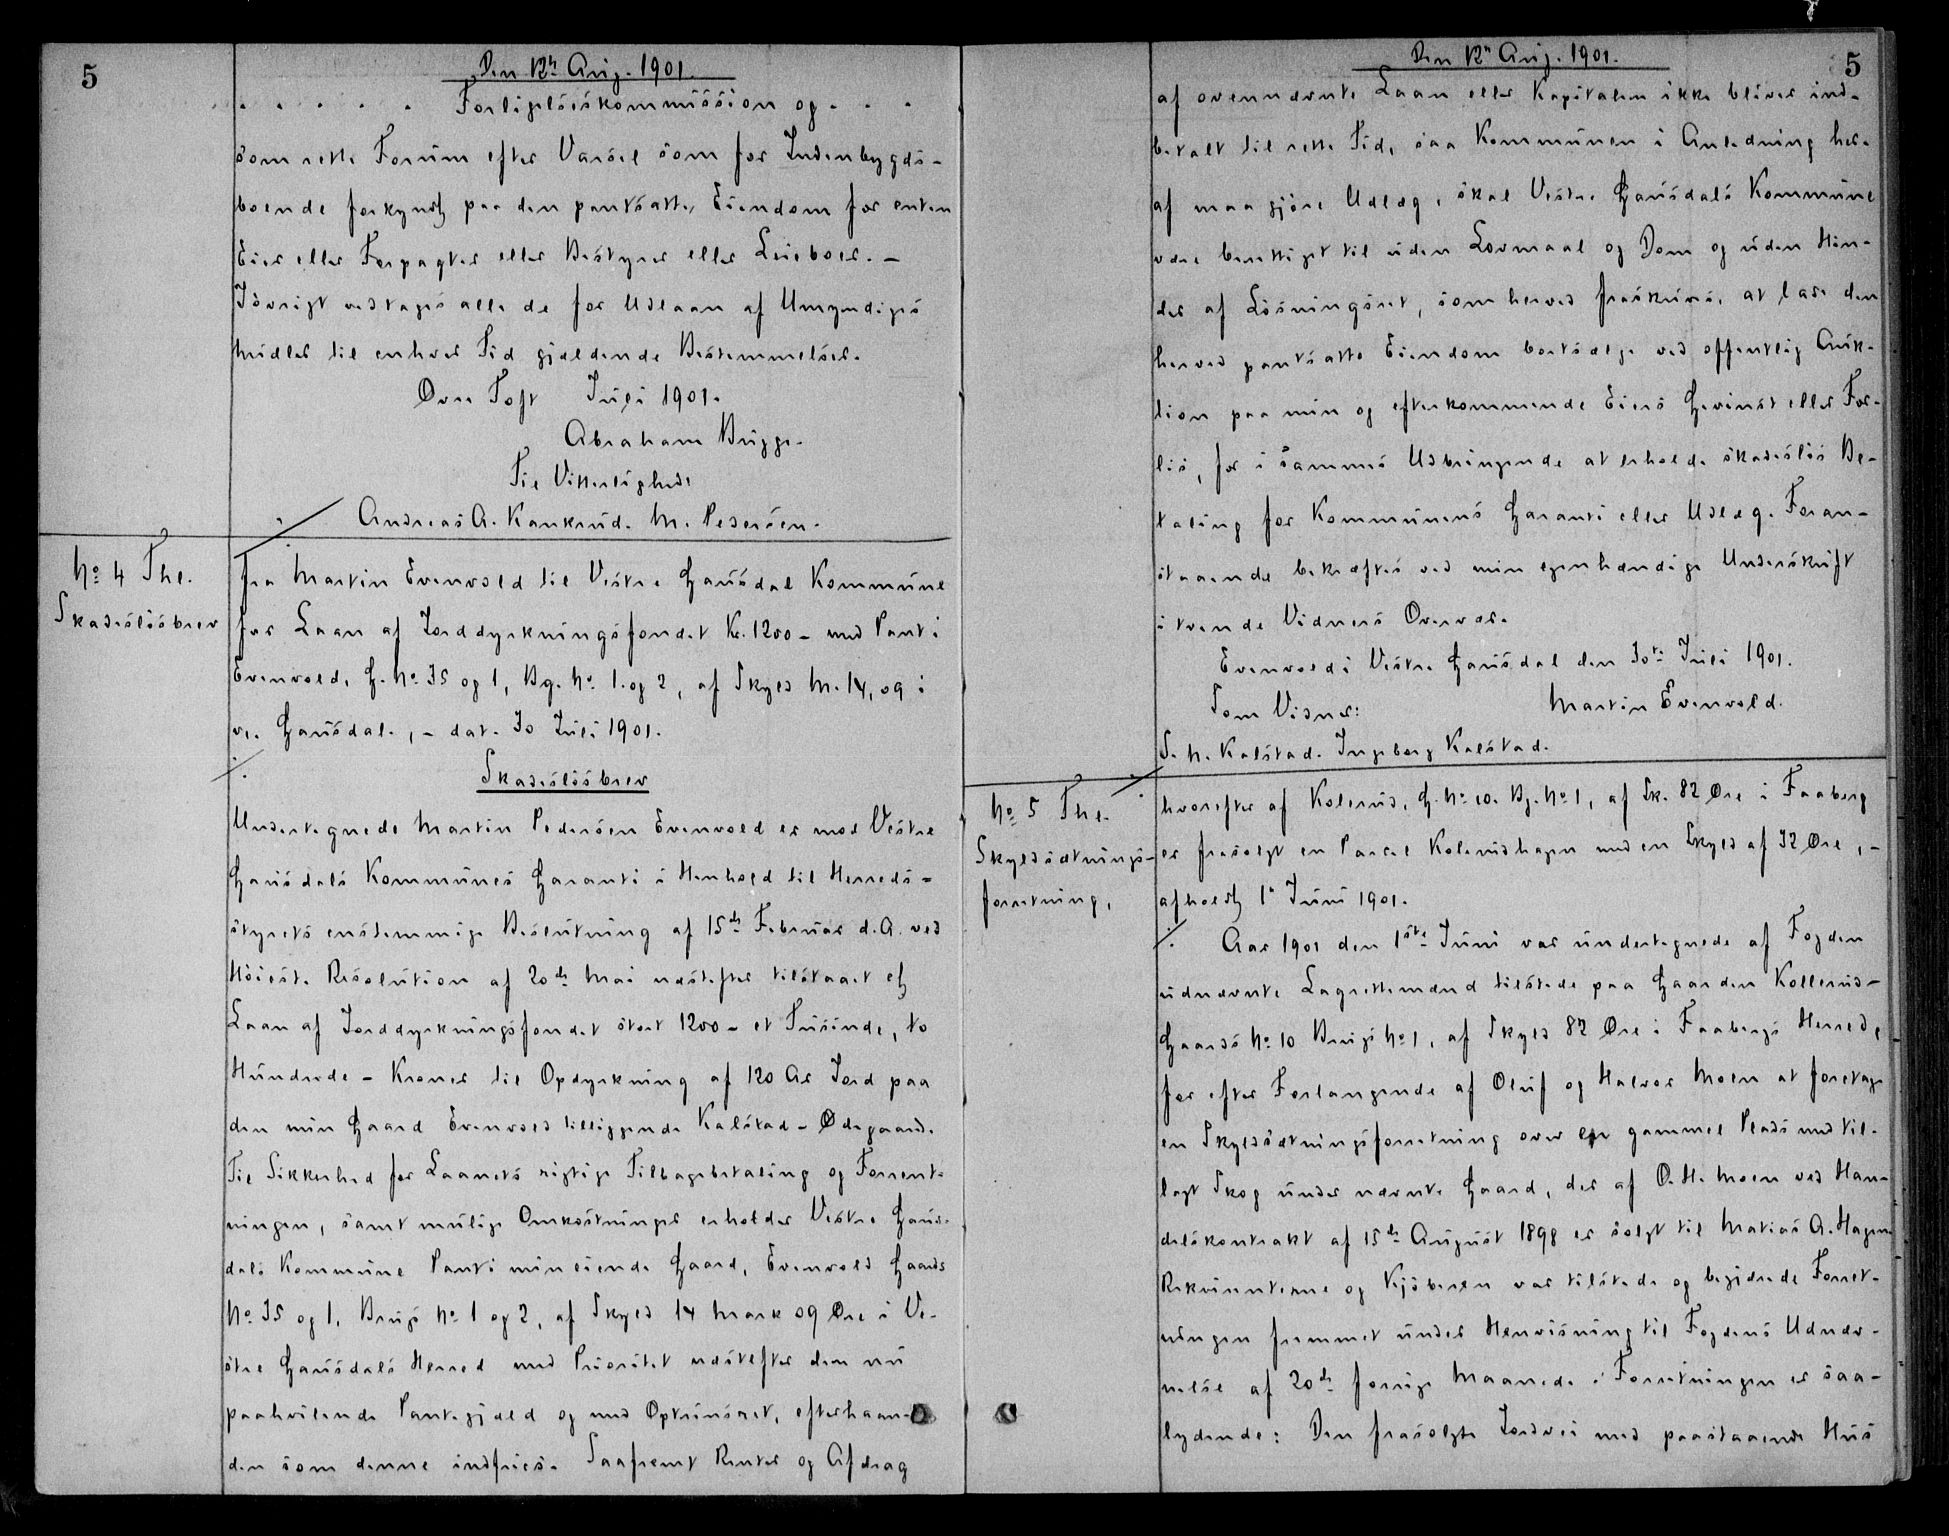 5
Den 12te Aug. 1901.
. . . . . Forligelseskommission og . . .
som rette Forum efter Varsel som for Indenbygds-
boende forkyndt paa den pantsatte Eiendom for enten
Eier eller Forpagter eller Bestyrer eller Leieboer. –
Iøvrigt vedtages alle de for Udlaan af Umyndiges
Midler til enhver Tid gjældende Bestemmelser.
Øvre Toft Juli 1901.
Abraham Brigge.
Til Vitterlighed:
Andreas A. Kankrud. M. Pedersen.
No 4 Thl.
Skadesløsbrev
fra Martin Evenvold til Vestre Gausdal Kommune
for Laan af Jorddyrkningsfondet Kr. 1200 – med Pant i
Evenvold, G. No 35 og 1, Bg. No 1. og 2, af Skyld M. 14,09 i
v. Gausdal., – dat. 30 Juli 1901.
Skadesløsbrev
Undertegnede Martin Pedersen Evenvold er mod Vestre
Gausdals Kommunes Garanti i Henhold til Herreds-
styrets enstemmige Beslutning af 15de Februar d. A. ved
Høieste Resolution af 20de Mai næstefter tilstaaet et
Laan af Jorddyrkningsfondet stort 1200 – et Tusinde, to
Hundrede – Kroner til Opdyrkning af 120 Ar Jord paa
den min Gaard Evenvold tilliggende Kalstad-Ødegaard.
Til Sikkerhed for Laanets rigtige Tilbagebetaling og Forrent-
ningen, samt mulige Omkostninger erholder Vestre Gaus-
dals Kommune Pant i min eiende Gaard, Evenvold Gaards
No 35 og 1, Brugs No 1 og 2, af Skyld 14 Mark 09 Øre i Ve-
stre Gausdals Herred med Prioritet næstefter den nu
paahvilende Pantegjæld og med Optrinsret, efterhaan-
den som denne indfries. Saafremt Renter og Afdrag
Den 12te Aug. 1901.
5
af ovennævnte Laan eller Kapitalen ikke bliver ind-
betalt til rette Tid, saa Kommunen i Anledning her-
af maa gjøre Udlæg, skal Vestre Gausdals Kommune
være berettiget til uden Lovmaal og Dom og uden Hin-
der af Løsningsret, som herved fraskrives, at lade den
herved pantsatte Eiendom bortsælge ved offentlig Auk-
tion paa min og efterkommende Eiers Gevinst eller For-
lis, for i sammes Udbringende at erholde skadesløs Be-
taling for Kommunens Garanti eller Udlæg. Foran-
staaende bekræftes ved min egenhændige Underskrift
i tvende Vidners Overvær.
Evenvold i Vestre Gausdal den 30te Juli 1901.
Som Vidner: Martin Evenvold.
S. N. Kalstad. Ingeborg Kalstad.
No 5 Thl.
Skyldsætnings-
forretning,
hvorefter af Kolerud, G. No 10. Bg. No 1, af Sk. 82 Øre i Faaberg
er frasolgt en Parcel Kolerudshagen med en Skyld af 32 Øre, –
afholdt 1ste Juni 1901.
Aar 1901 den 1ste Juni var undertegnede af Fogden
udnævnte Lagrettemænd tilstede paa Gaarden Kollerud-
Gaards No 10 Brugs No 1, af Skyld 82 Øre i Faabergs Herred,
for efter Forlangende af Oluf og Halvor Moen at foretage
en Skyldsætningsforretning over en gammel Plads med til-
lagt Skog under nævnte Gaard, der af O. H. Moen ved Han-
delskontrakt af 15de August 1898 er solgt til Matias A. Hagen.
Rekvirenterne og Kjøberen var tilstede og begjærede Forret-
ningen fremmet under Henvisning til Fogdens Udnæv-
nelse af 20de forrige Maaned. Forretningen er saa-
lydende: Den frasolgte Jordvei med paastaaende Hus